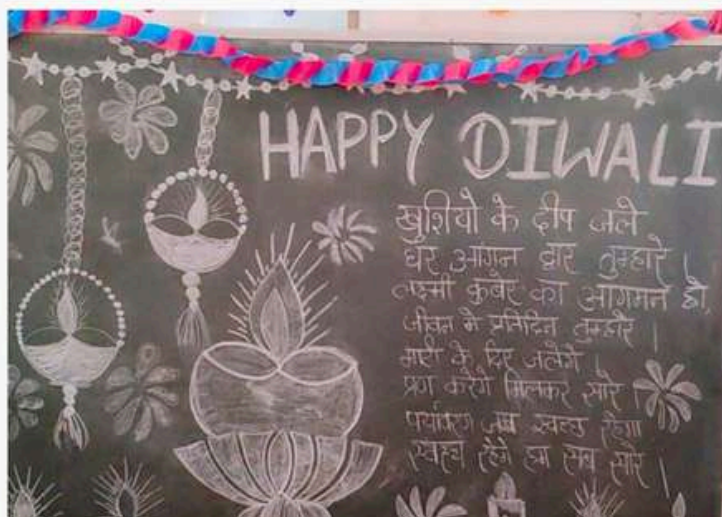 HAPPY DIWALI
खुशियो के दीप जले
घर आंगन द्वार तुम्हारे ।
लक्ष्मी कुबेर का आगमन हो,
जीवन मे प्रतिदिन तुम्हारे ।
माटी के दिए जलेंगे ।
प्रण करेंगे मिलकर सारे ।
पर्यावरण जब स्वच्छ रहेगा
स्वस्थ रहेंगे हम सब सारे ।